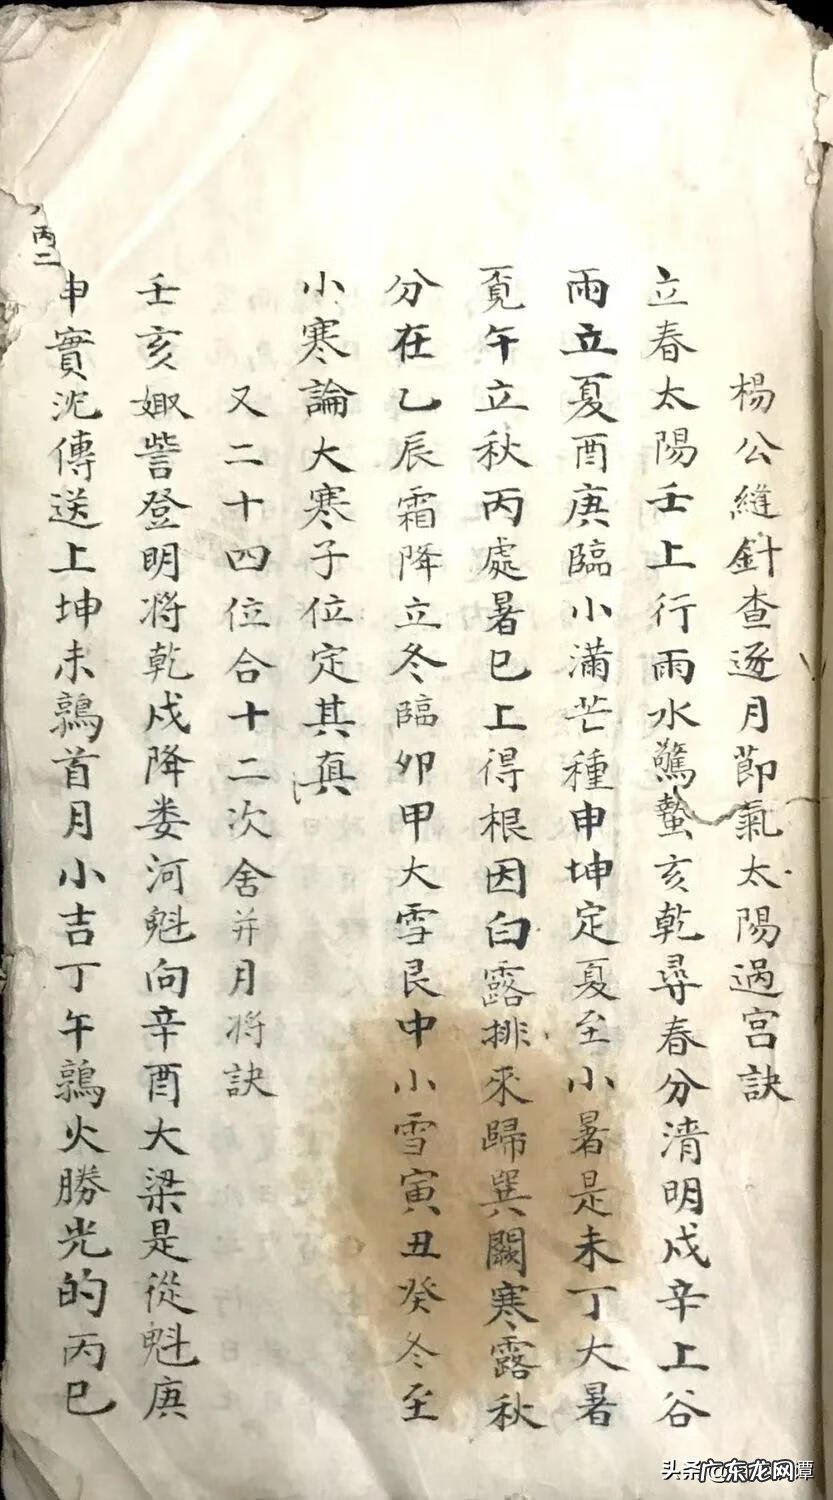 楊公縫針查逐月節氣太陽過宮訣
立春太陽壬上行雨水驚蟄亥乾尋春分清明戌辛上谷
雨立夏酉庚臨小滿芒種申坤定夏至小暑是未丁大暑
覔午立秋丙處暑巳上得根因白露排來歸巽闕寒露秋
分在乙辰霜降立冬臨卯甲大雪艮中小雪寅丑癸冬至
小寒論大寒子位定其真
又二十四位合十二次舍并月将訣
壬亥娵訾登明将乾戌降娄河魁向辛酉大梁是從魁庚
申實沈傳送上坤未鶉首月小吉丁午鶉火勝光的丙巳
丙二
头条
广东龙网
潭